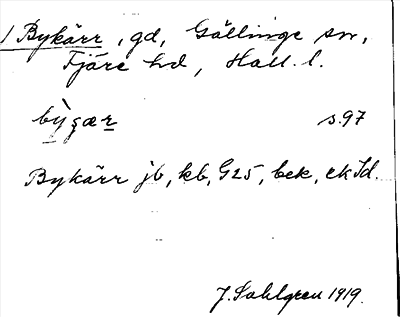 1 Bykärr, gd, Gällinge sn,
Fjäre hd, Hall. l.
s. 97
Bykärr jb, kb, G25, bek,
J. Sahlgren 1919.